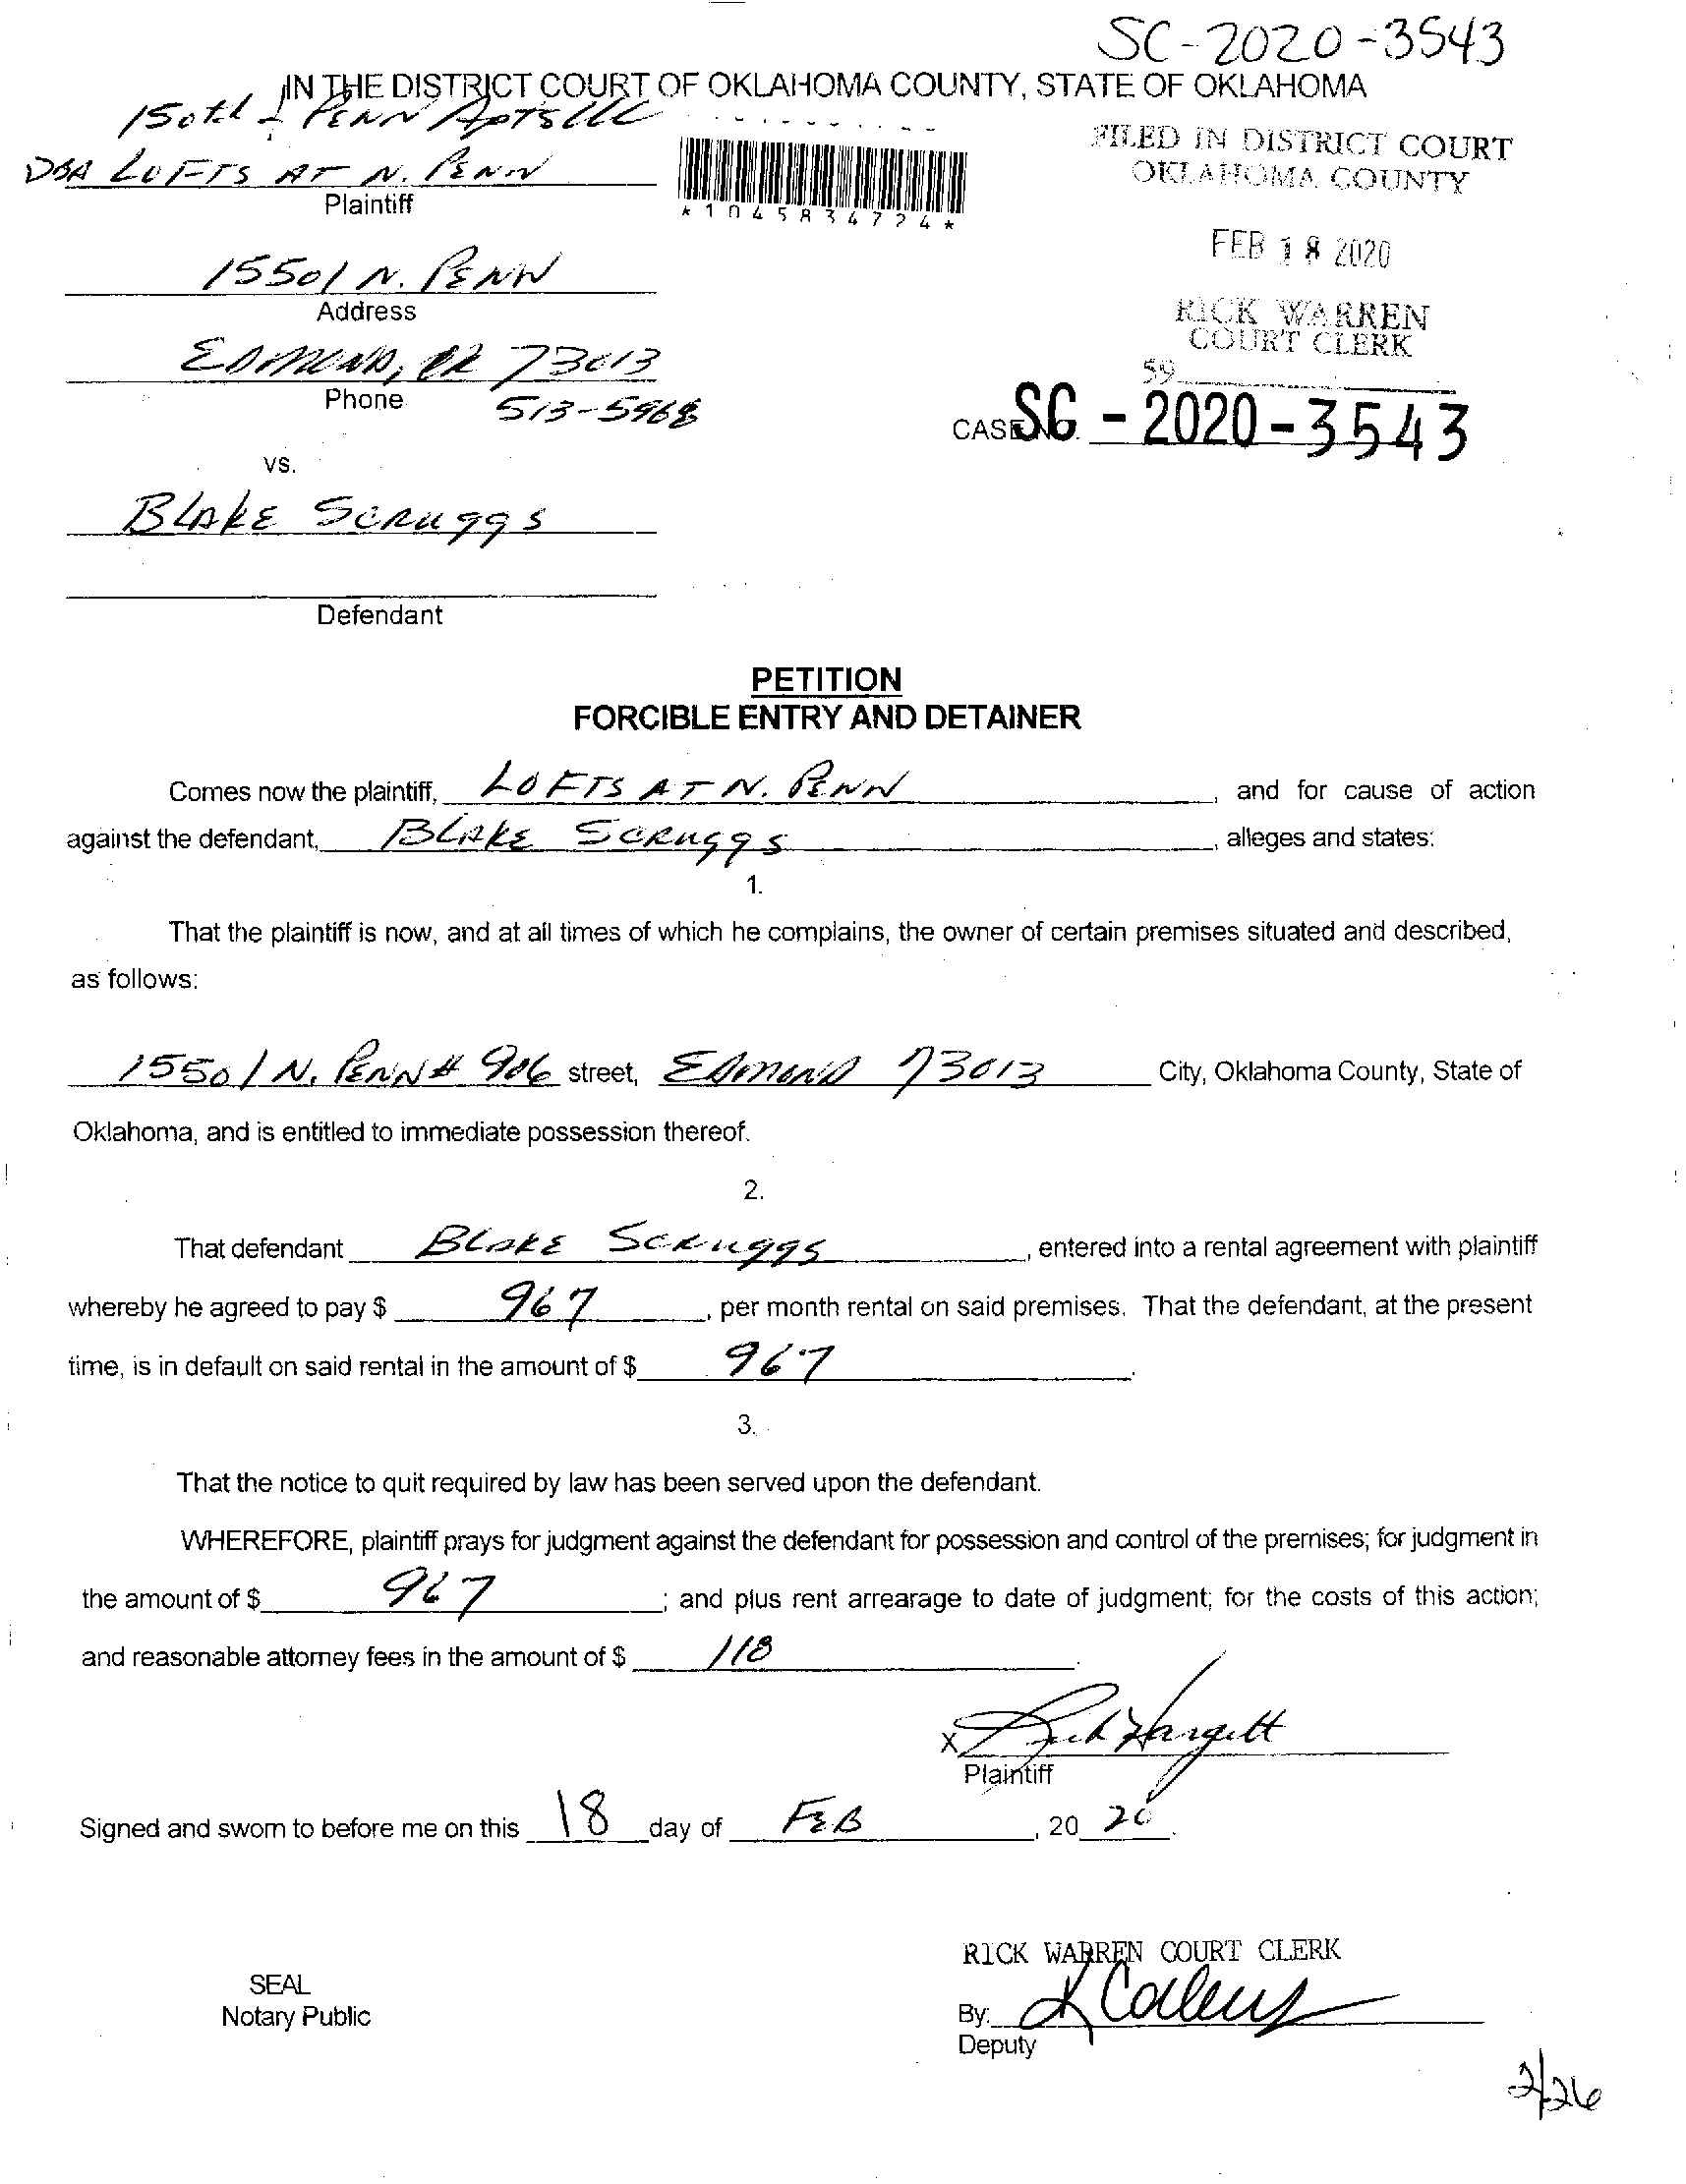 SC-2020-3543
IN THE DISTRICT COURT OF OKLAHOMA COUNTY, STATE OF OKLAHOMA
150th & PENN APTS LLC
DBA LOFTS AT N. PENN
Plaintiff
*1045834724*
FILED IN DISTRICT COURT
OKLAHOMA COUNTY
FEB 18 2020
RICK WARREN
COURT CLERK
59
15501 N. PENN
Address
EDMOND, OK 73013
Phone
513-5968
CASE NO. SC - 2020 - 3543
vs.
BLAKE SCRUGGS
Defendant
PETITION
FORCIBLE ENTRY AND DETAINER
Comes now the plaintiff, LOFTS AT N. PENN, and for cause of action
against the defendant, BLAKE SCRUGGS, alleges and states:
1.
That the plaintiff is now, and at all times of which he complains, the owner of certain premises situated and described,
as follows:
15501 N. PENN # 906 street, EDMOND 73013 City, Oklahoma County, State of
Oklahoma, and is entitled to immediate possession thereof.
2.
That defendant BLAKE SCRUGGS, entered into a rental agreement with plaintiff
whereby he agreed to pay $ 967, per month rental on said premises. That the defendant, at the present
time, is in default on said rental in the amount of $ 967.
3.
That the notice to quit required by law has been served upon the defendant.
WHEREFORE, plaintiff prays for judgment against the defendant for possession and control of the premises; for judgment in
the amount of $ 967; and plus rent arrearage to date of judgment; for the costs of this action;
and reasonable attorney fees in the amount of $ 118.
X Rick Hargett
Plaintiff
Signed and sworn to before me on this 18 day of FEB, 20 20.
RICK WARREN COURT CLERK
SEAL
Notary Public
By:
Deputy
2/26